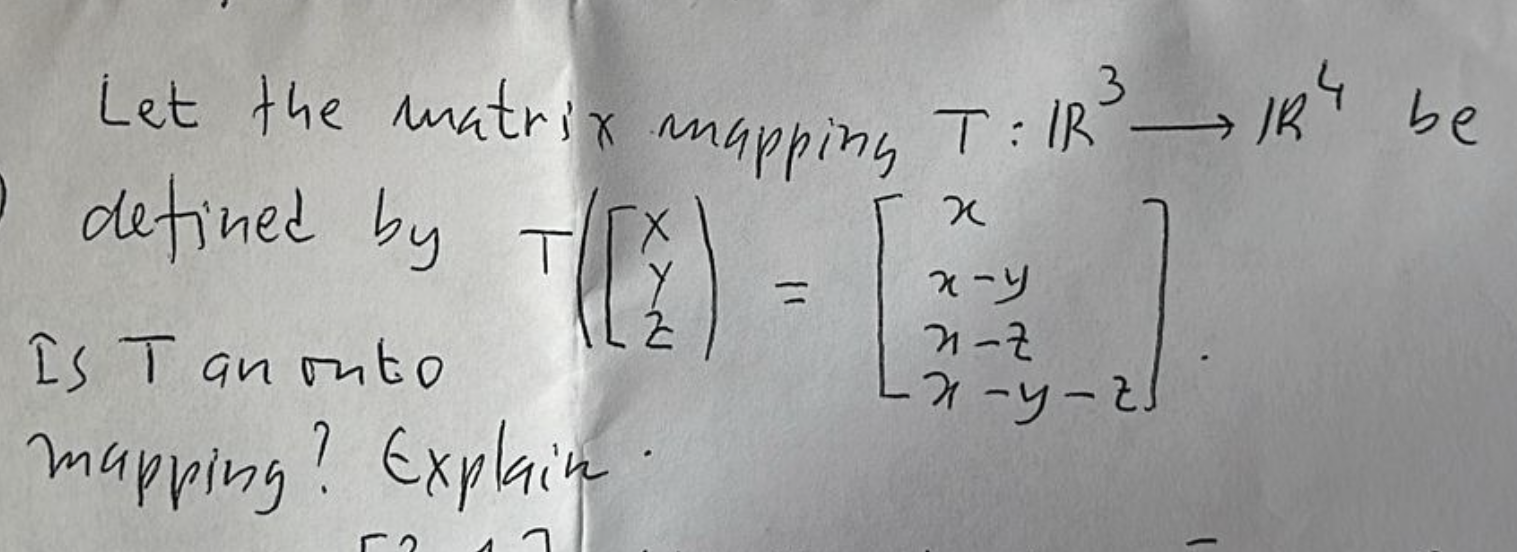 Let the matrix mapping T : ℝ³ ⟶ ℝ⁴ be
defined by T([x y z]) = [x x-y x-z x-y-z].
Is T an onto
mapping? Explain.